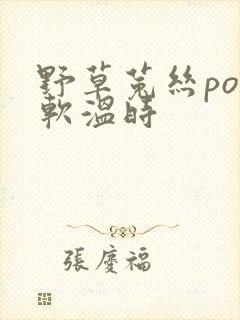 野草菟絲po
軟溫時
張慶福